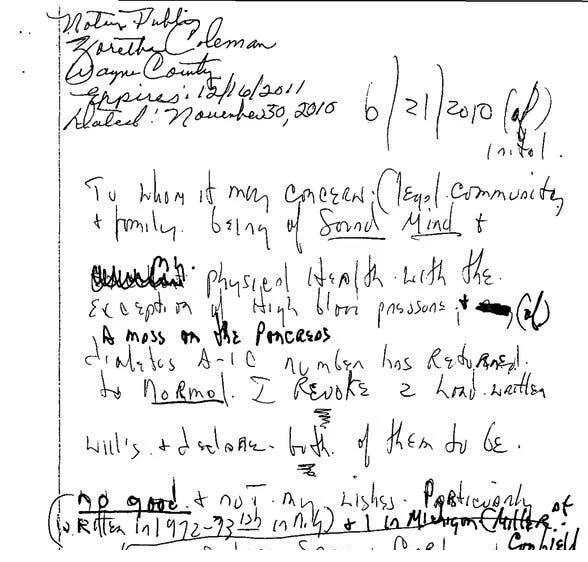 Notary Public
Zoretha Coleman
Wayne County
Expires: 12/16/2011
Dated: November 30, 2010
6/21/2010 (af)
Initol.
To whom it may concern; (legal. community
+ family. being of Sound Mind +
physical Health. with the.
Exception of High bloov pressore, + (af)
A moss on the Poncreos
diabetes A-1C number has Returned.
to Normol. I REVOKE 2 Hond. written
will's. + declare. both. of them to be.
no good + not my wishes. Particularly
(written in 1972-73 ish in N.Y) + 1 in Michigon (Miller of
Confield